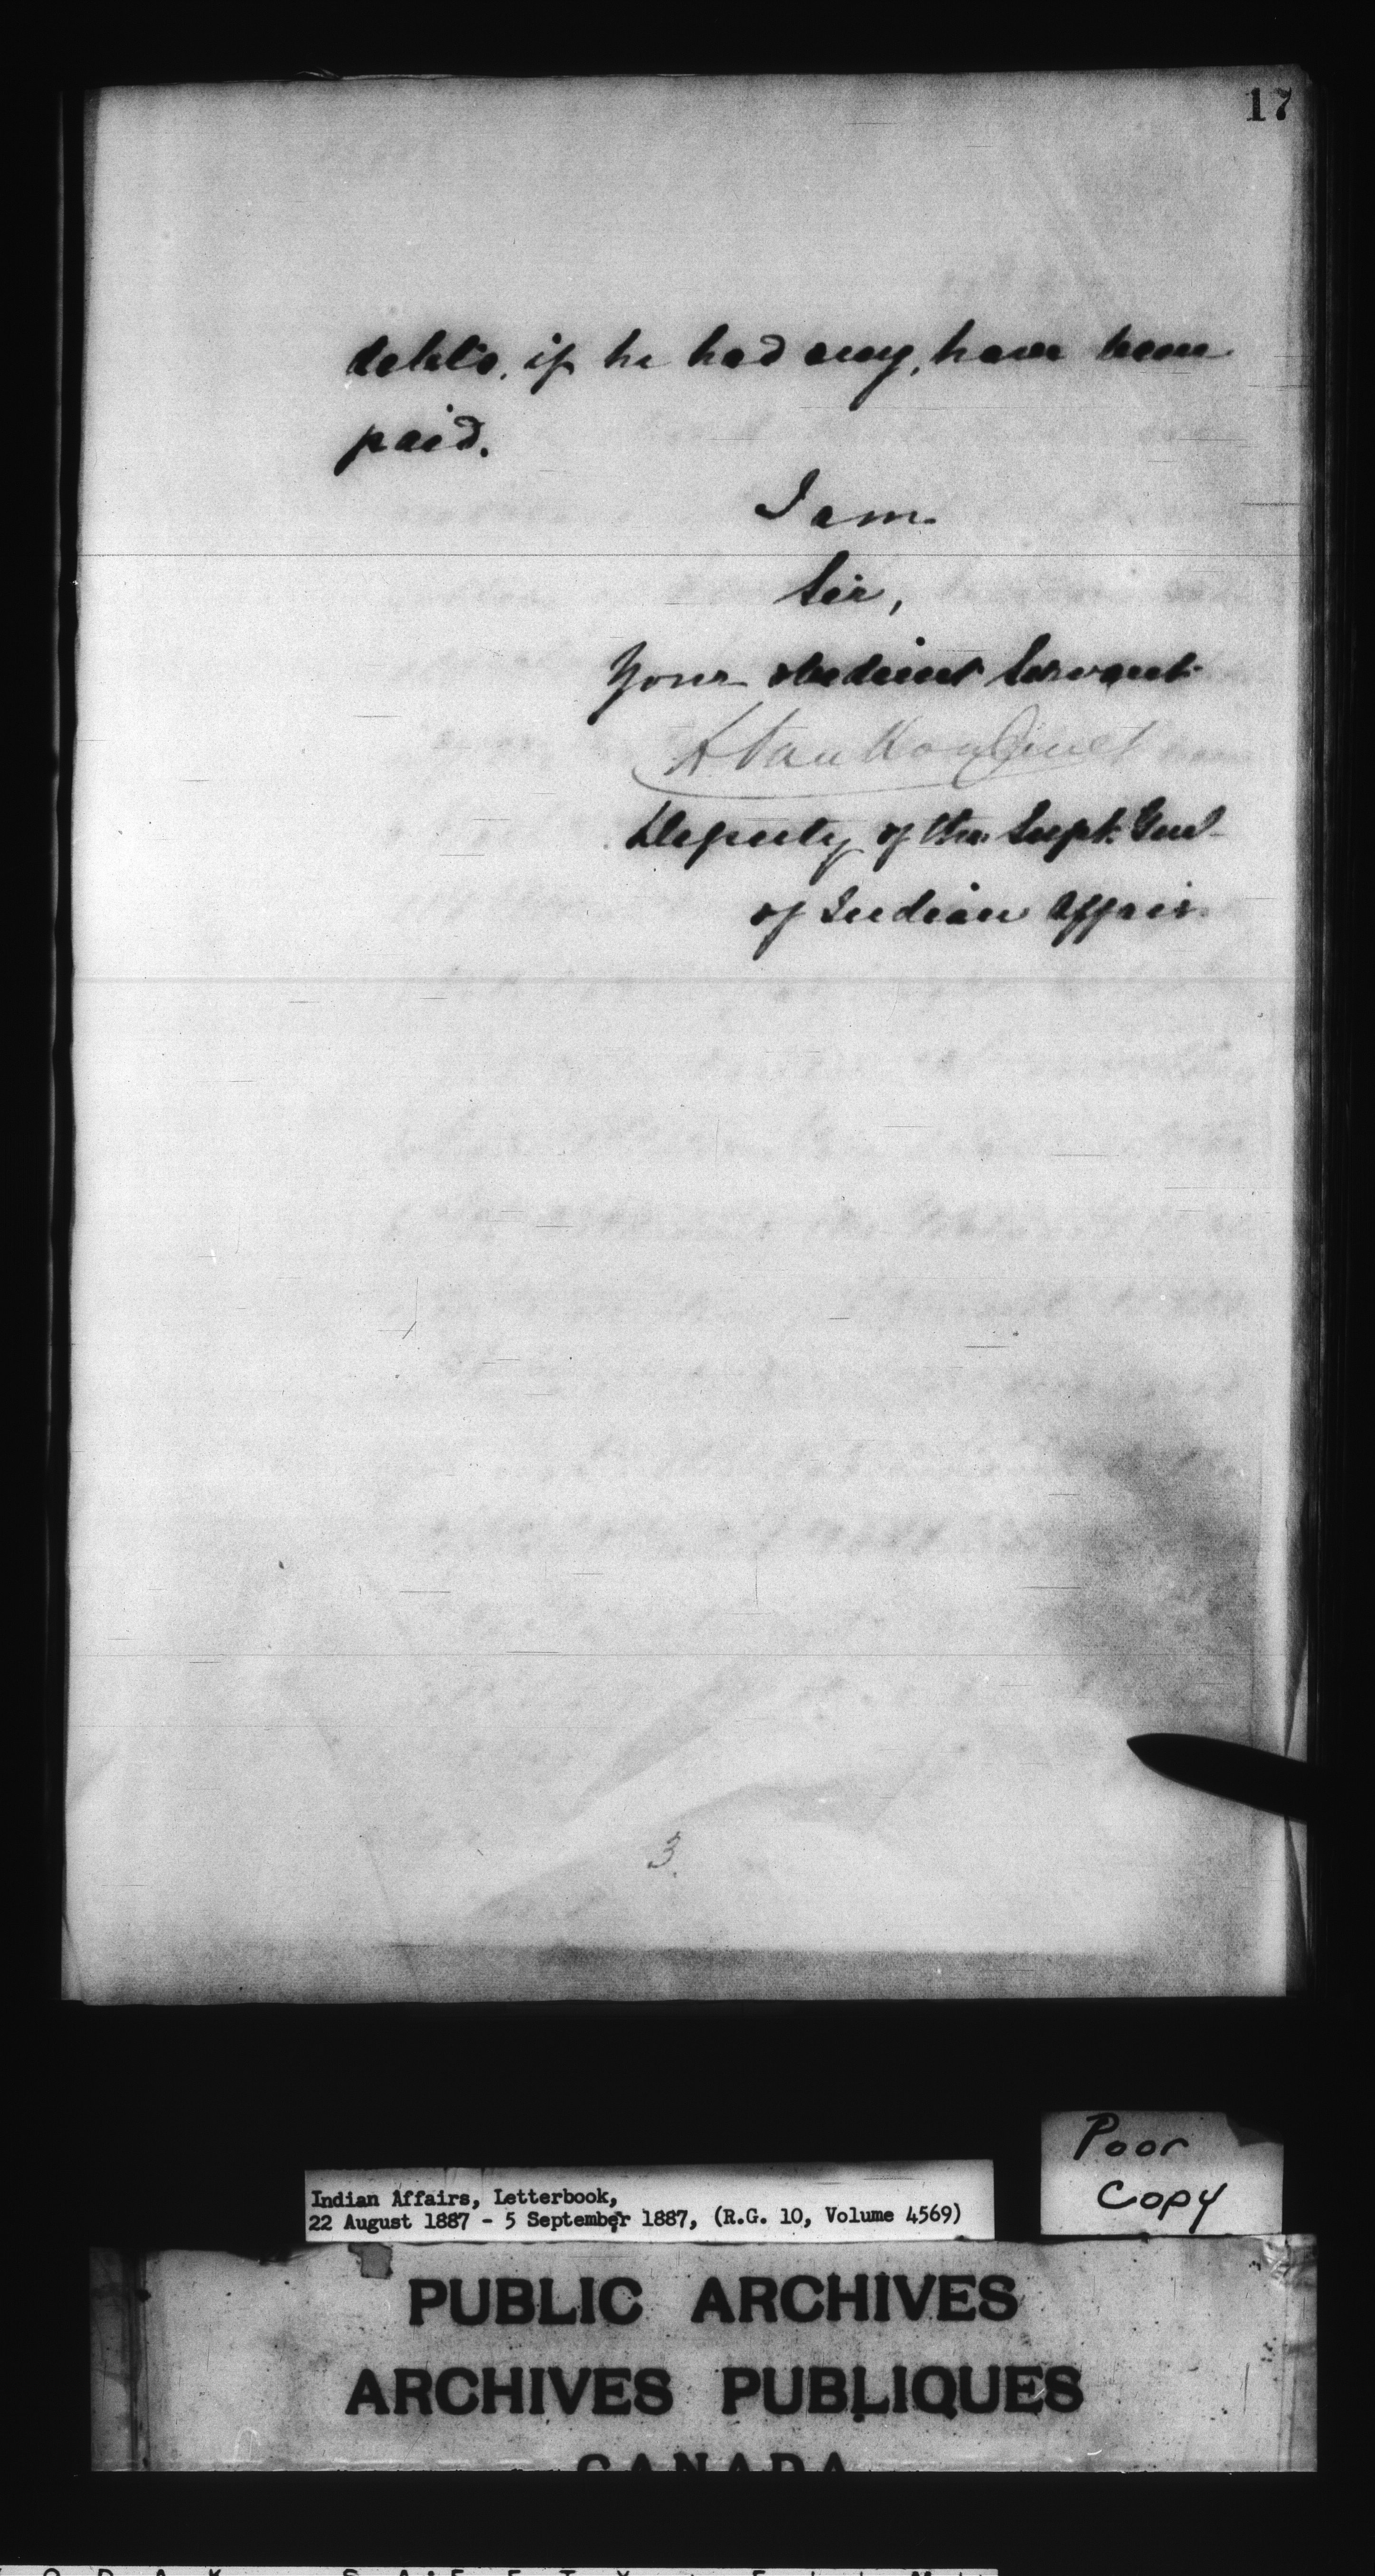 17
debts, if he had any, have been
paid.
I am
Sir,
Your obedient Servant
L VanKoughnet
Deputy of the Supt. Genl
of Indian Affairs
3.
Poor
Copy
Indian Affairs, Letterbook,
22 August 1887 - 5 September 1887, (R.G. 10, Volume 4569)
PUBLIC ARCHIVES
ARCHIVES PUBLIQUES
CANADA